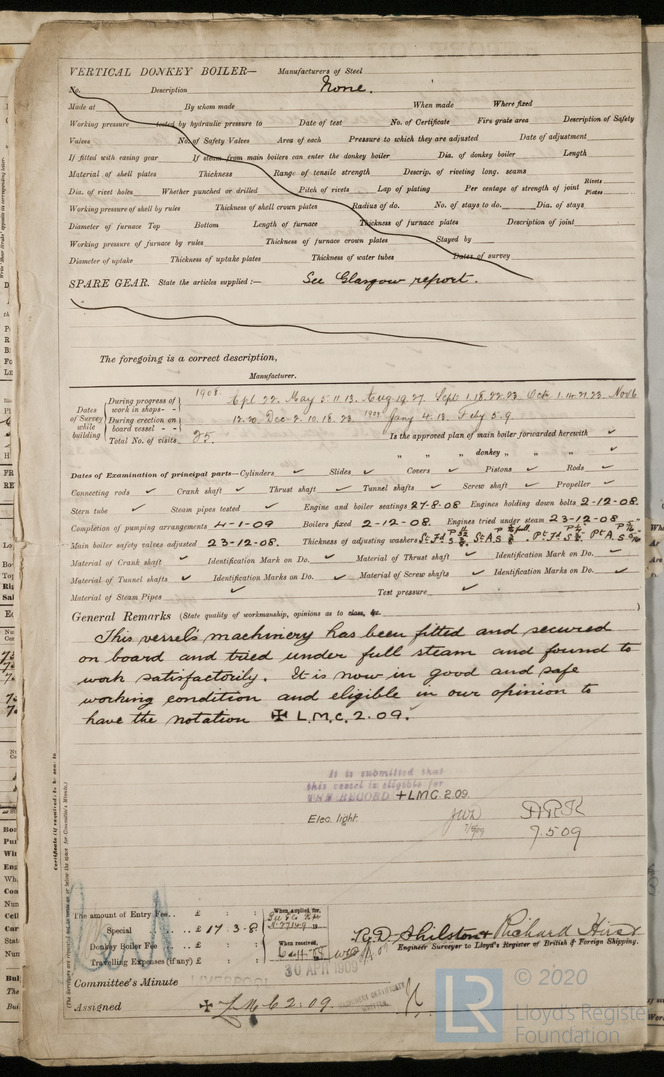 VERTICAL DONKEY BOILER— Manufacturers of Steel
No. Description None.
Made at By whom made When made Where fixed
Working pressure tested by hydraulic pressure to Date of test No. of Certificate Fire grate area Description of Safety
Valves No. of Safety Valves Area of each Pressure to which they are adjusted Date of adjustment
If fitted with easing gear If steam from main boilers can enter the donkey boiler Dia. of donkey boiler Length
Material of shell plates Thickness Range of tensile strength Descrip. of riveting long. seams
Dia. of rivet holes Whether punched or drilled Pitch of rivets Lap of plating Per centage of strength of joint Rivets Plates
Working pressure of shell by rules Thickness of shell crown plates Radius of do. No. of stays to do. Dia. of stays
Diameter of furnace Top Bottom Length of furnace Thickness of furnace plates Description of joint
Working pressure of furnace by rules Thickness of furnace crown plates Stayed by
Diameter of uptake Thickness of uptake plates Thickness of water tubes Dates of survey
SPARE GEAR. State the articles supplied :— See Glasgow report.
The foregoing is a correct description,
Manufacturer.
Dates of Survey while building
During progress of work in shops - - 1908 Apl 22. May 5. 11. 13. Aug 19. 27. Sept 1. 18. 22. 23. Oct 1. 14. 21. 23. Nov 6
During erection on board vessel - - 12. 20. Dec 2. 10. 18. 23. 1909 Jany 4. 13. Feby 5. 9.
Total No. of visits 25. Is the approved plan of main boiler forwarded herewith ✓
" " " donkey " " " ✓
Dates of Examination of principal parts—Cylinders ✓ Slides ✓ Covers ✓ Pistons ✓ Rods ✓
Connecting rods ✓ Crank shaft ✓ Thrust shaft ✓ Tunnel shafts ✓ Screw shaft ✓ Propeller ✓
Stern tube ✓ Steam pipes tested ✓ Engine and boiler seatings 27-8-08 Engines holding down bolts 2-12-08.
Completion of pumping arrangements 4-1-09 Boilers fixed 2-12-08. Engines tried under steam 23-12-08
Main boiler safety valves adjusted 23-12-08. Thickness of adjusting washers
Material of Crank shaft ✓ Identification Mark on Do. ✓ Material of Thrust shaft ✓ Identification Mark on Do. ✓
Material of Tunnel shafts ✓ Identification Marks on Do. ✓ Material of Screw shafts ✓ Identification Marks on Do. ✓
Material of Steam Pipes ✓ Test pressure ✓
General Remarks (State quality of workmanship, opinions as to class, &c. )
This vessels machinery has been fitted and secured
on board and tried under full steam and found to
work satisfactorily. It is now in good and safe
working condition and eligible in our opinion to
have the notation ✠ L.M.C. 2.09.
It is submitted that
this vessel is eligible for
THE RECORD +LMC 2.09.
Elec. light.
7.5.09
Certificate (if required) to be sent to
The amount of Entry Fee .. £ : : When applied for,
Special .. .. £ 17 . 3 - 8
Donkey Boiler Fee .. .. £ : : When received,
Travelling Expenses (if any) £ : :
30 APR 1909
Richard Hirst
Engineer Surveyor to Lloyd's Register of British & Foreign Shipping.
Committee's Minute LIVERPOOL
Assigned ✠ L M C 2.09.
MACHINERY CERTIFICATE
WRITTEN
LR
© 2020
Lloyd's Register
Foundation